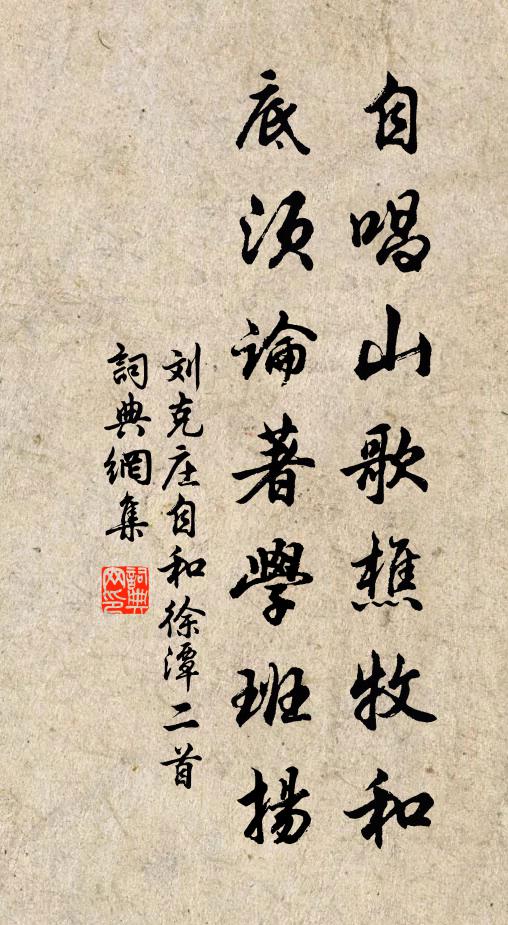 自唱山歌樵牧和
底须論著學班揚
刘克庄自和徐潭二首
詞典網集
詞典网印